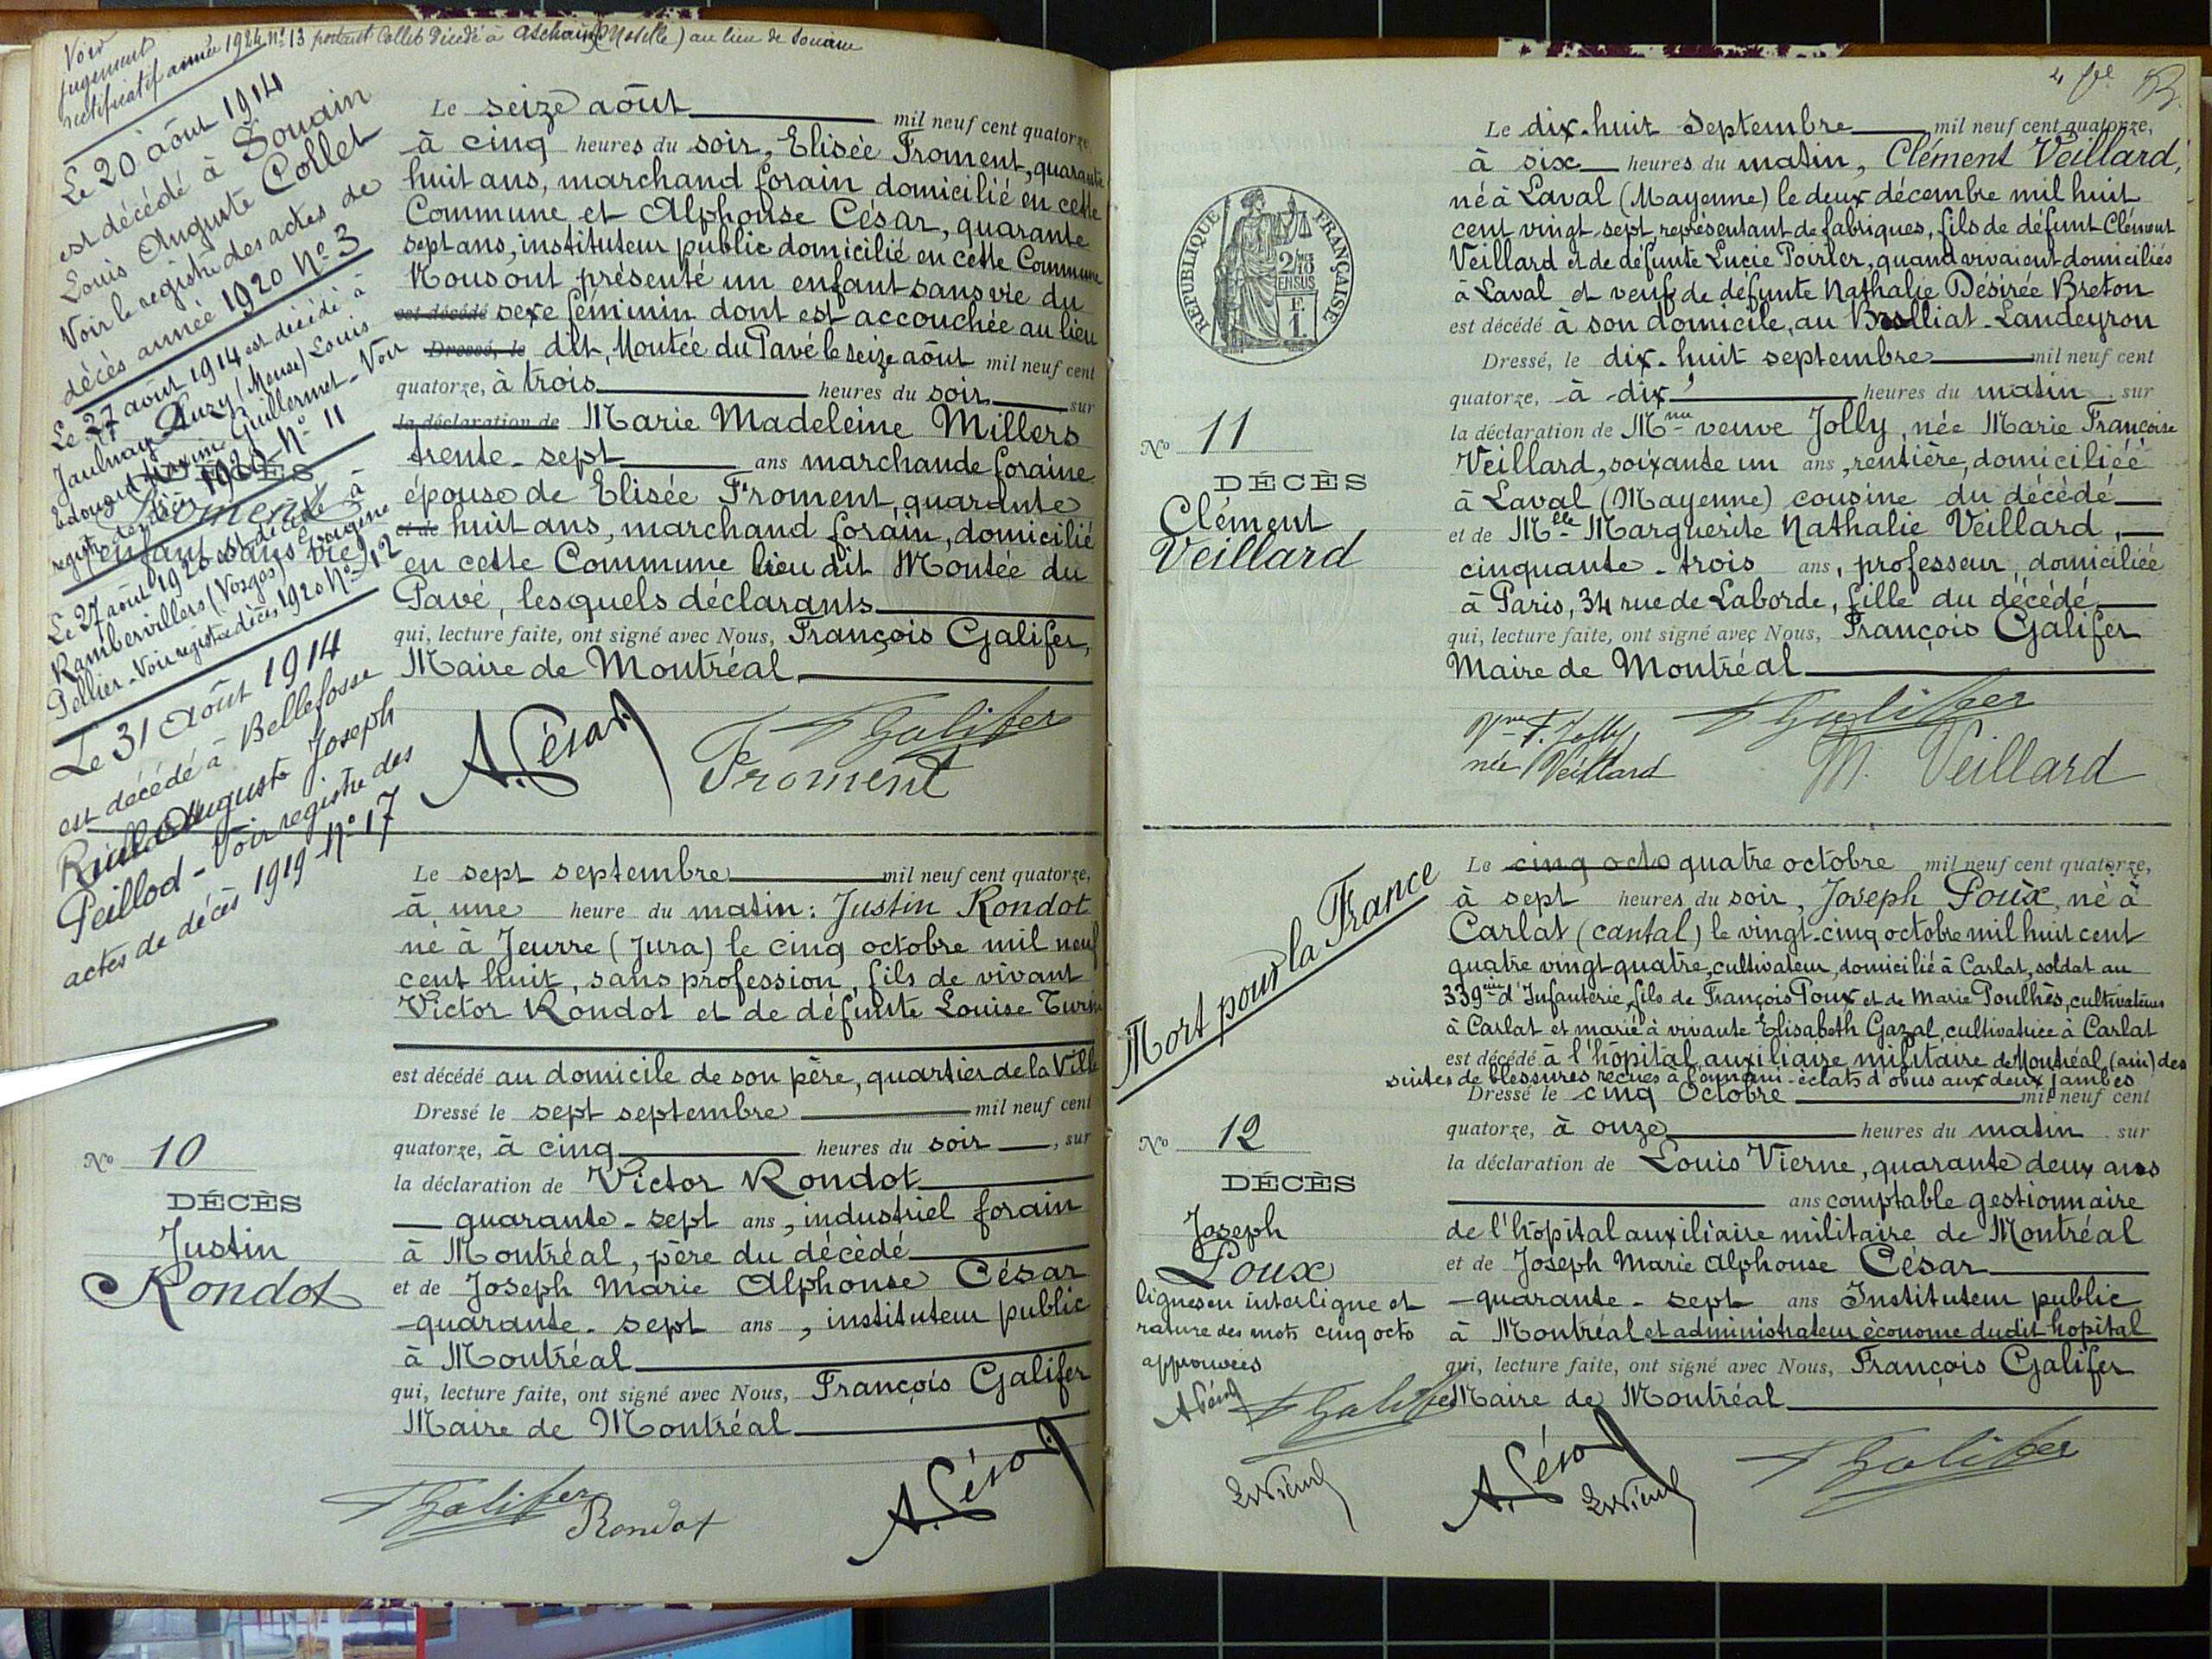 Voir
jugement
rectificatif année 1924 Nº 13 portant Collet Décédé à (Moselle) au lieu de Souain
Le 20 août 1914
est décédé à Souain
Louis Auguste Collet
Voir le registre des actes de
décès année 1920 Nº 3
Le 27 août 1914 est décédé à
Jaulnay Luzy (Meuse) Louis
Edouard Maxime Guillermet - Voir
registre décès 1920 - Nº 11
DÉCÈS
Froment
enfant sans vie
Le 27 août 1920 est décédé à
Rambervillers (Vosges) Eugène
Pellier - Voir registre décès 1920 Nº 12
Le 31 Août 1914
est décédé à Bellefosse
Auguste Joseph
Peillod - Voir registre des
actes de décès 1919 - Nº 17
Le seize août mil neuf cent quatorze
à cinq heures du soir, Elisée Froment, quarante
huit ans, marchand forain domicilié en cette
Commune et Alphonse César, quarante
sept ans, instituteur public domicilié en cette Commune
Nous ont présenté un enfant sans vie du
est décédé sexe féminin dont est accouchée au lieu
Dressé, le dit, Montée du Pavé le seize août mil neuf cent
quatorze, à trois heures du soir, sur
la déclaration de Marie Madeleine Millers
trente-sept ans marchande foraine
épouse de Elisée Froment, quarante
et de huit ans, marchand forain, domicilié
en cette Commune lieu dit Montée du
Pavé, lesquels déclarants
qui, lecture faite, ont signé avec Nous, François Galifer,
Maire de Montréal
A. César
F Galifer
Froment
Le sept septembre mil neuf cent quatorze,
à une heure du matin: Justin Rondot
né à Jeurre (Jura) le cinq octobre mil neuf
cent huit, sans profession, fils de vivant
Victor Rondot et de défunte Louise Turin
est décédé au domicile de son père, quartier de la Ville
Dressé le sept septembre mil neuf cent
quatorze, à cinq heures du soir, sur
la déclaration de Victor Rondot
quarante-sept ans, industriel forain
à Montréal, père du décédé
et de Joseph Marie Alphonse César
quarante-sept ans, instituteur public
à Montréal
qui, lecture faite, ont signé avec Nous, François Galifer
Maire de Montréal
Nº 10
DÉCÈS
Justin
Rondot
F Galifer
Rondot
A. César
4
RÉPUBLIQUE FRANÇAISE
2/10
EN SUS
F
1
Le dix-huit Septembre mil neuf cent quatorze,
à six heures du matin, Clément Veillard,
né à Laval (Mayenne) le deux décembre mil huit
cent vingt-sept, représentant de fabriques, fils de défunt Clément
Veillard et de défunte Lucie Poirier, quand vivaient domiciliés
à Laval et veuf de défunte Nathalie Désirée Breton
est décédé à son domicile, au Landeyron
Dressé, le dix-huit septembre mil neuf cent
quatorze, à dix heures du matin, sur
la déclaration de Mme veuve Jolly, née Marie Françoise
Veillard, soixante un ans, rentière, domiciliée
à Laval (Mayenne) cousine du décédé
et de Mlle Marguerite Nathalie Veillard,
cinquante-trois ans, professeur, domiciliée
à Paris, 34 rue de Laborde, fille du décédé
qui, lecture faite, ont signé avec Nous, François Galifer
Maire de Montréal
Nº 11
DÉCÈS
Clément
Veillard
Vve F. Jolly
née Veillard
F Galifer
M. Veillard
Mort pour la France
Le cinq octo quatre octobre mil neuf cent quatorze,
à sept heures du soir, Joseph Poux, né à
Carlat (cantal) le vingt-cinq octobre mil huit cent
quatre vingt quatre, cultivateur, domicilié à Carlat, soldat au
339ème d'Infanterie, fils de François Poux et de Marie Poulhès, cultivateurs
à Carlat et marié à vivante Elisabeth Gazal, cultivatrice à Carlat
est décédé à l'hôpital auxiliaire militaire de Montréal (ain) des
suites de blessures reçues à l'ennemi - éclats d'obus aux deux jambes
Dressé le cinq Octobre mil neuf cent
quatorze, à onze heures du matin, sur
la déclaration de Louis Vierne, quarante deux ans
ans comptable gestionnaire
de l'hôpital auxiliaire militaire de Montréal
et de Joseph Marie Alphonse César
quarante-sept ans Instituteur public
à Montréal et administrateur économe dudit hopital
qui, lecture faite, ont signé avec Nous, François Galifer
Maire de Montréal
Nº 12
DÉCÈS
Joseph
Poux
lignes en interligne et
rature des mots cinq octo
approuvées
A César
F Galifer
A. César
F Galifer